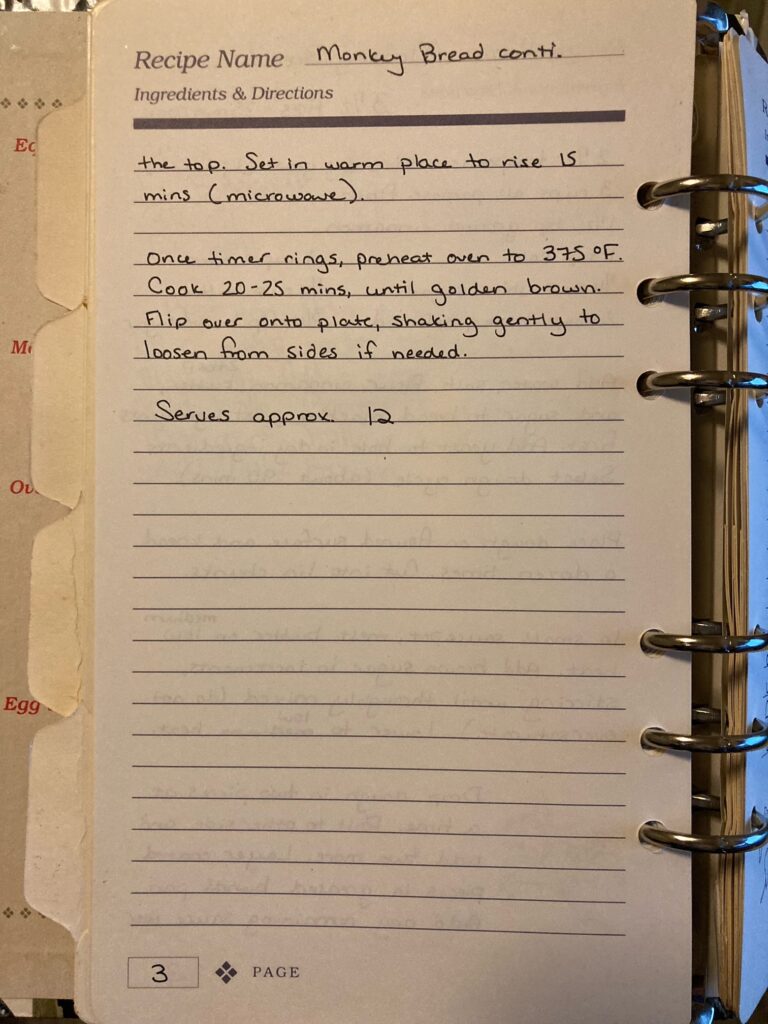 Recipe Name Monkey Bread conti.
Ingredients & Directions
the top. Set in warm place to rise 15
mins (microwave).
Once timer rings, preheat oven to 375 °F.
Cook 20-25 mins, until golden brown.
Flip over onto plate, shaking gently to
loosen from sides if needed.
Serves approx. 12
3 PAGE
Egg